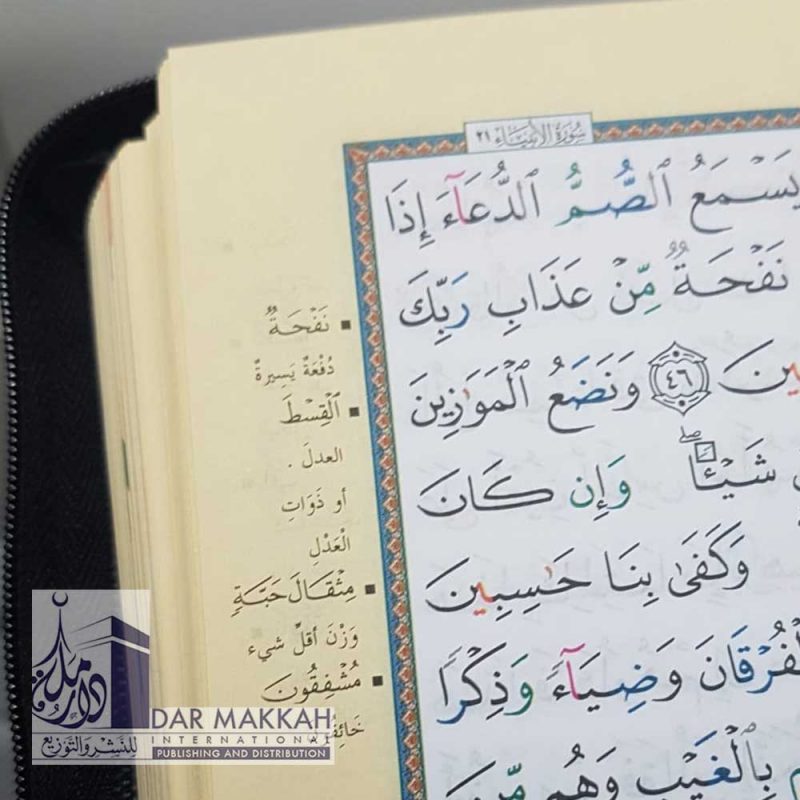 سُورَةُ الأَنبِيَاءِ ٢١
يَسْمَعُ ٱلصُّمُّ ٱلدُّعَآءَ إِذَا
نَفْحَةٌ مِّنْ عَذَابِ رَبِّكَ
ينَ ٤٦ وَنَضَعُ ٱلْمَوَٰزِينَ
شَيْـًٔا ۖ وَإِن كَانَ
وَكَفَىٰ بِنَا حَـٰسِبِينَ
لْفُرْقَانَ وَضِيَآءً وَذِكْرًا
بِٱلْغَيْبِ وَهُم مِّنَ
▪ نَفْحَةٌ
دُفْعَةٌ يَسِيرَةٌ
▪ ٱلْقِسْطَ
العدلَ .
أو ذَوَاتِ
الْعَدْلِ
▪ مِثْقَالَ حَبَّةٍ
وَزْنَ أقلِّ شيء
▪ مُشْفِقُونَ
دار مكة
للنشر والتوزيع
DAR MAKKAH
INTERNATIONAL
PUBLISHING AND DISTRIBUTION